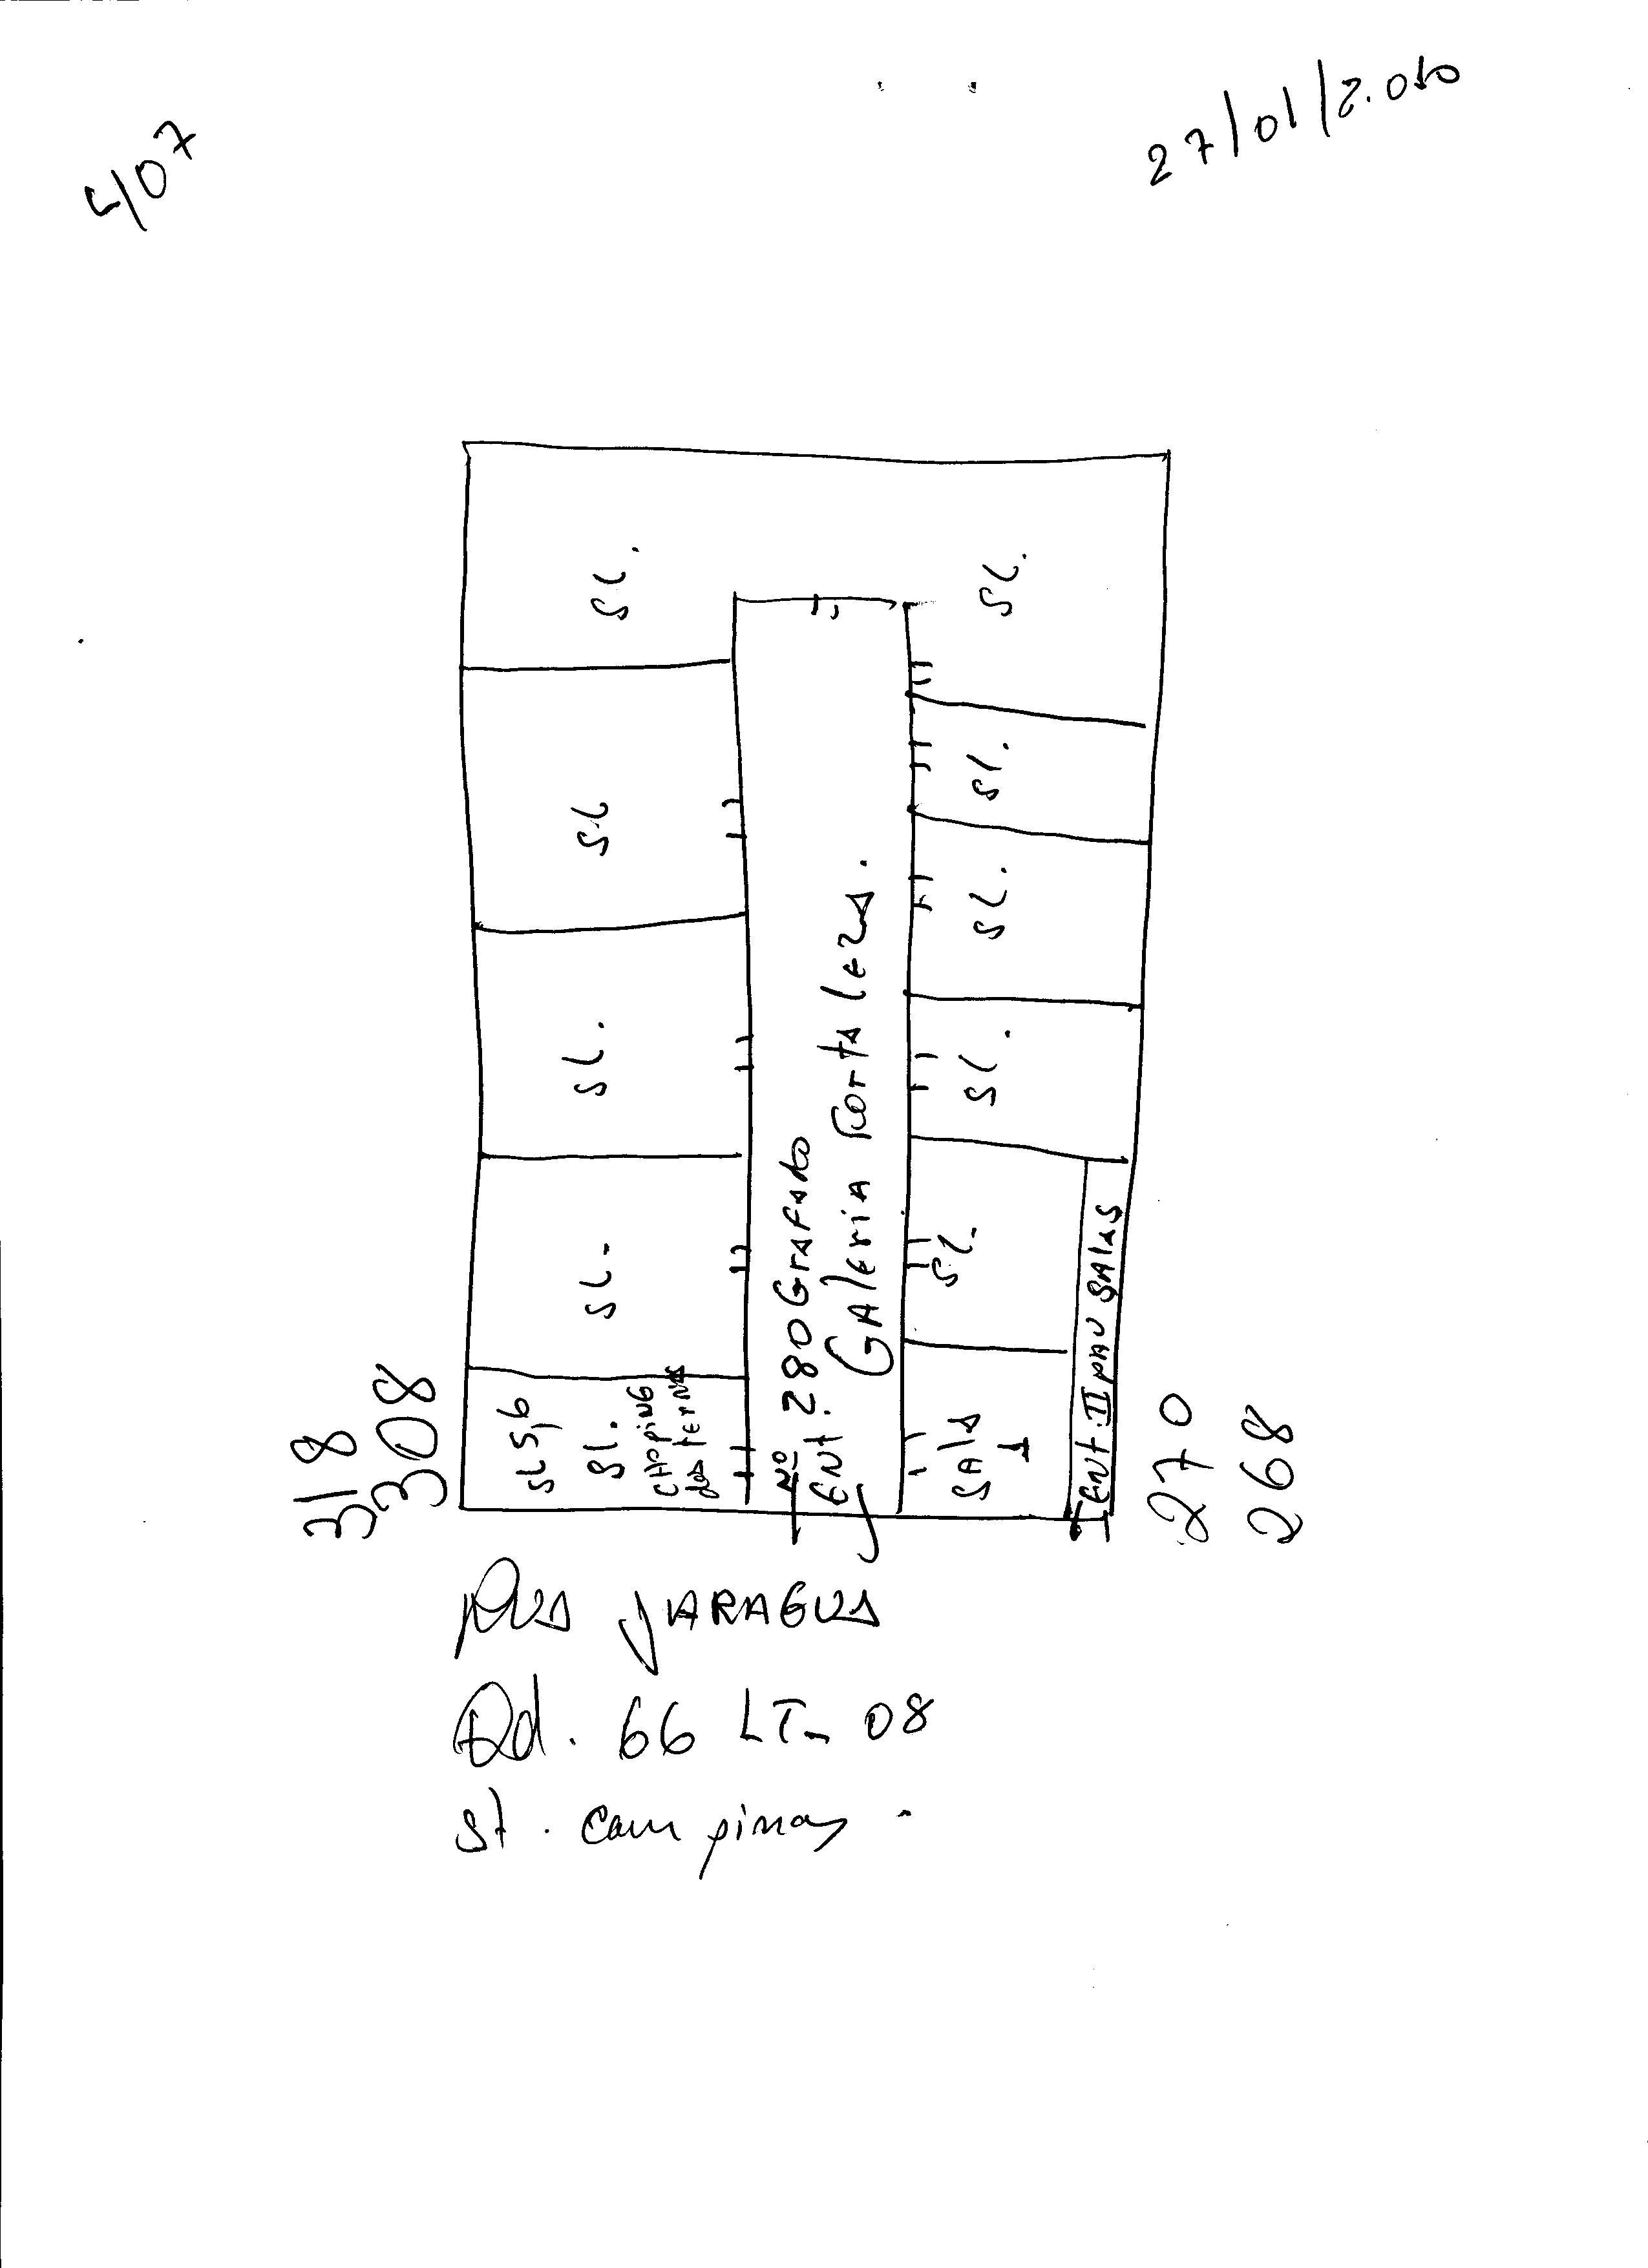 4/07
27/01/2.010
SL.
SL.
SL
Sl.
SL.
SL.
SL.
SL-
SL.
SL 5,6
Sl.
CHOpiNG
dos ternos
Nº 280 Grafado
ENt.
GAleriA Fortaleza.
SAlA
1
ENt. II pav SAlas
318
308
270
268
Rua JARAGUA
Qd. 66 LT- 08
st. Campinas.